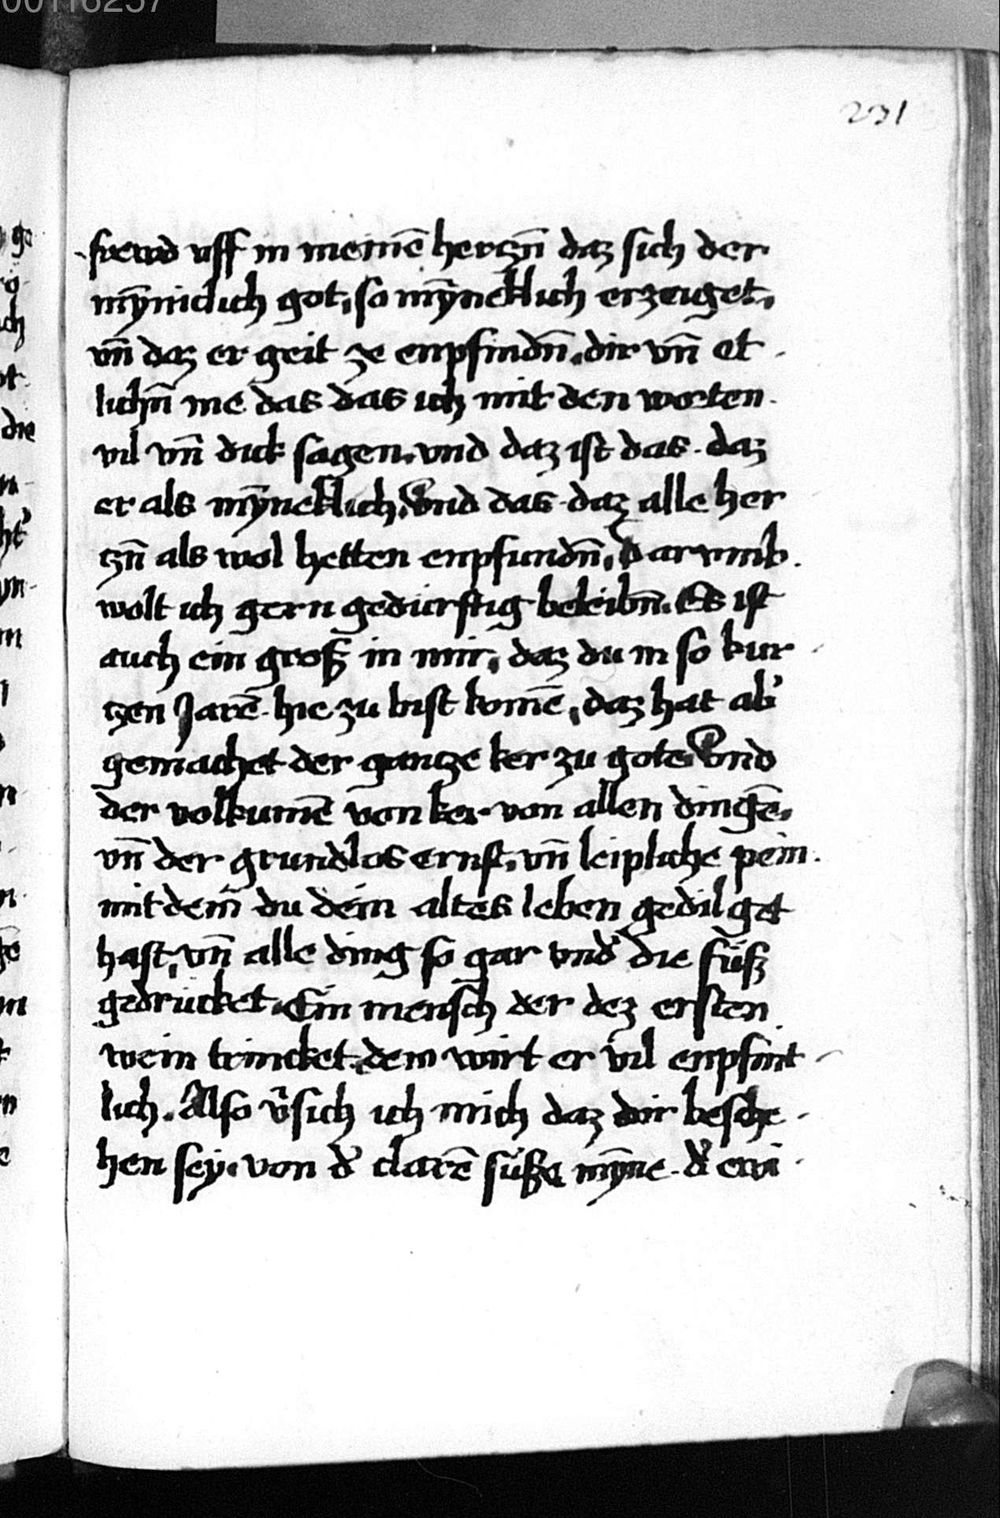 00116257
231
frewd uff in meinē hertzn̄ daz sich der
mȳniclich got, so mȳneklich erzeiget,
vn̄ daz er geit ze enpfindn̄. dir vn̄ et
lichn̄ me das das ich mit den worten
vil vn̄ dick sagen. vnd daz ist das. daz
er als mȳneklich. Vnd das daz alle her
tzn̄ als wol hetten enpfundn̄, Darvmb
wolt ich gern gedürftig beleibn̄. Es ist
auch ein groß in mir, daz du in so kur
tzen Jarē hie zu bist komē, daz hat ab̓
gemachet der gantze ker zu gote Vnd
der volkumē von ker von allen dingē.
vn̄ der grundlos ernst, vn̄ leipliche pein
mit dem̄ du dein altes leben gedilget
hast, vn̄ alle ding so gar vnd̓ die füß
gedrucket. Ein mensch der dez ersten
wein trincket. dem wirt er vil enpfint
lich. Also v̓sich ich mich daz dir besche
hen sey. von d̓ clarē süßē mȳne. d̓ ewi